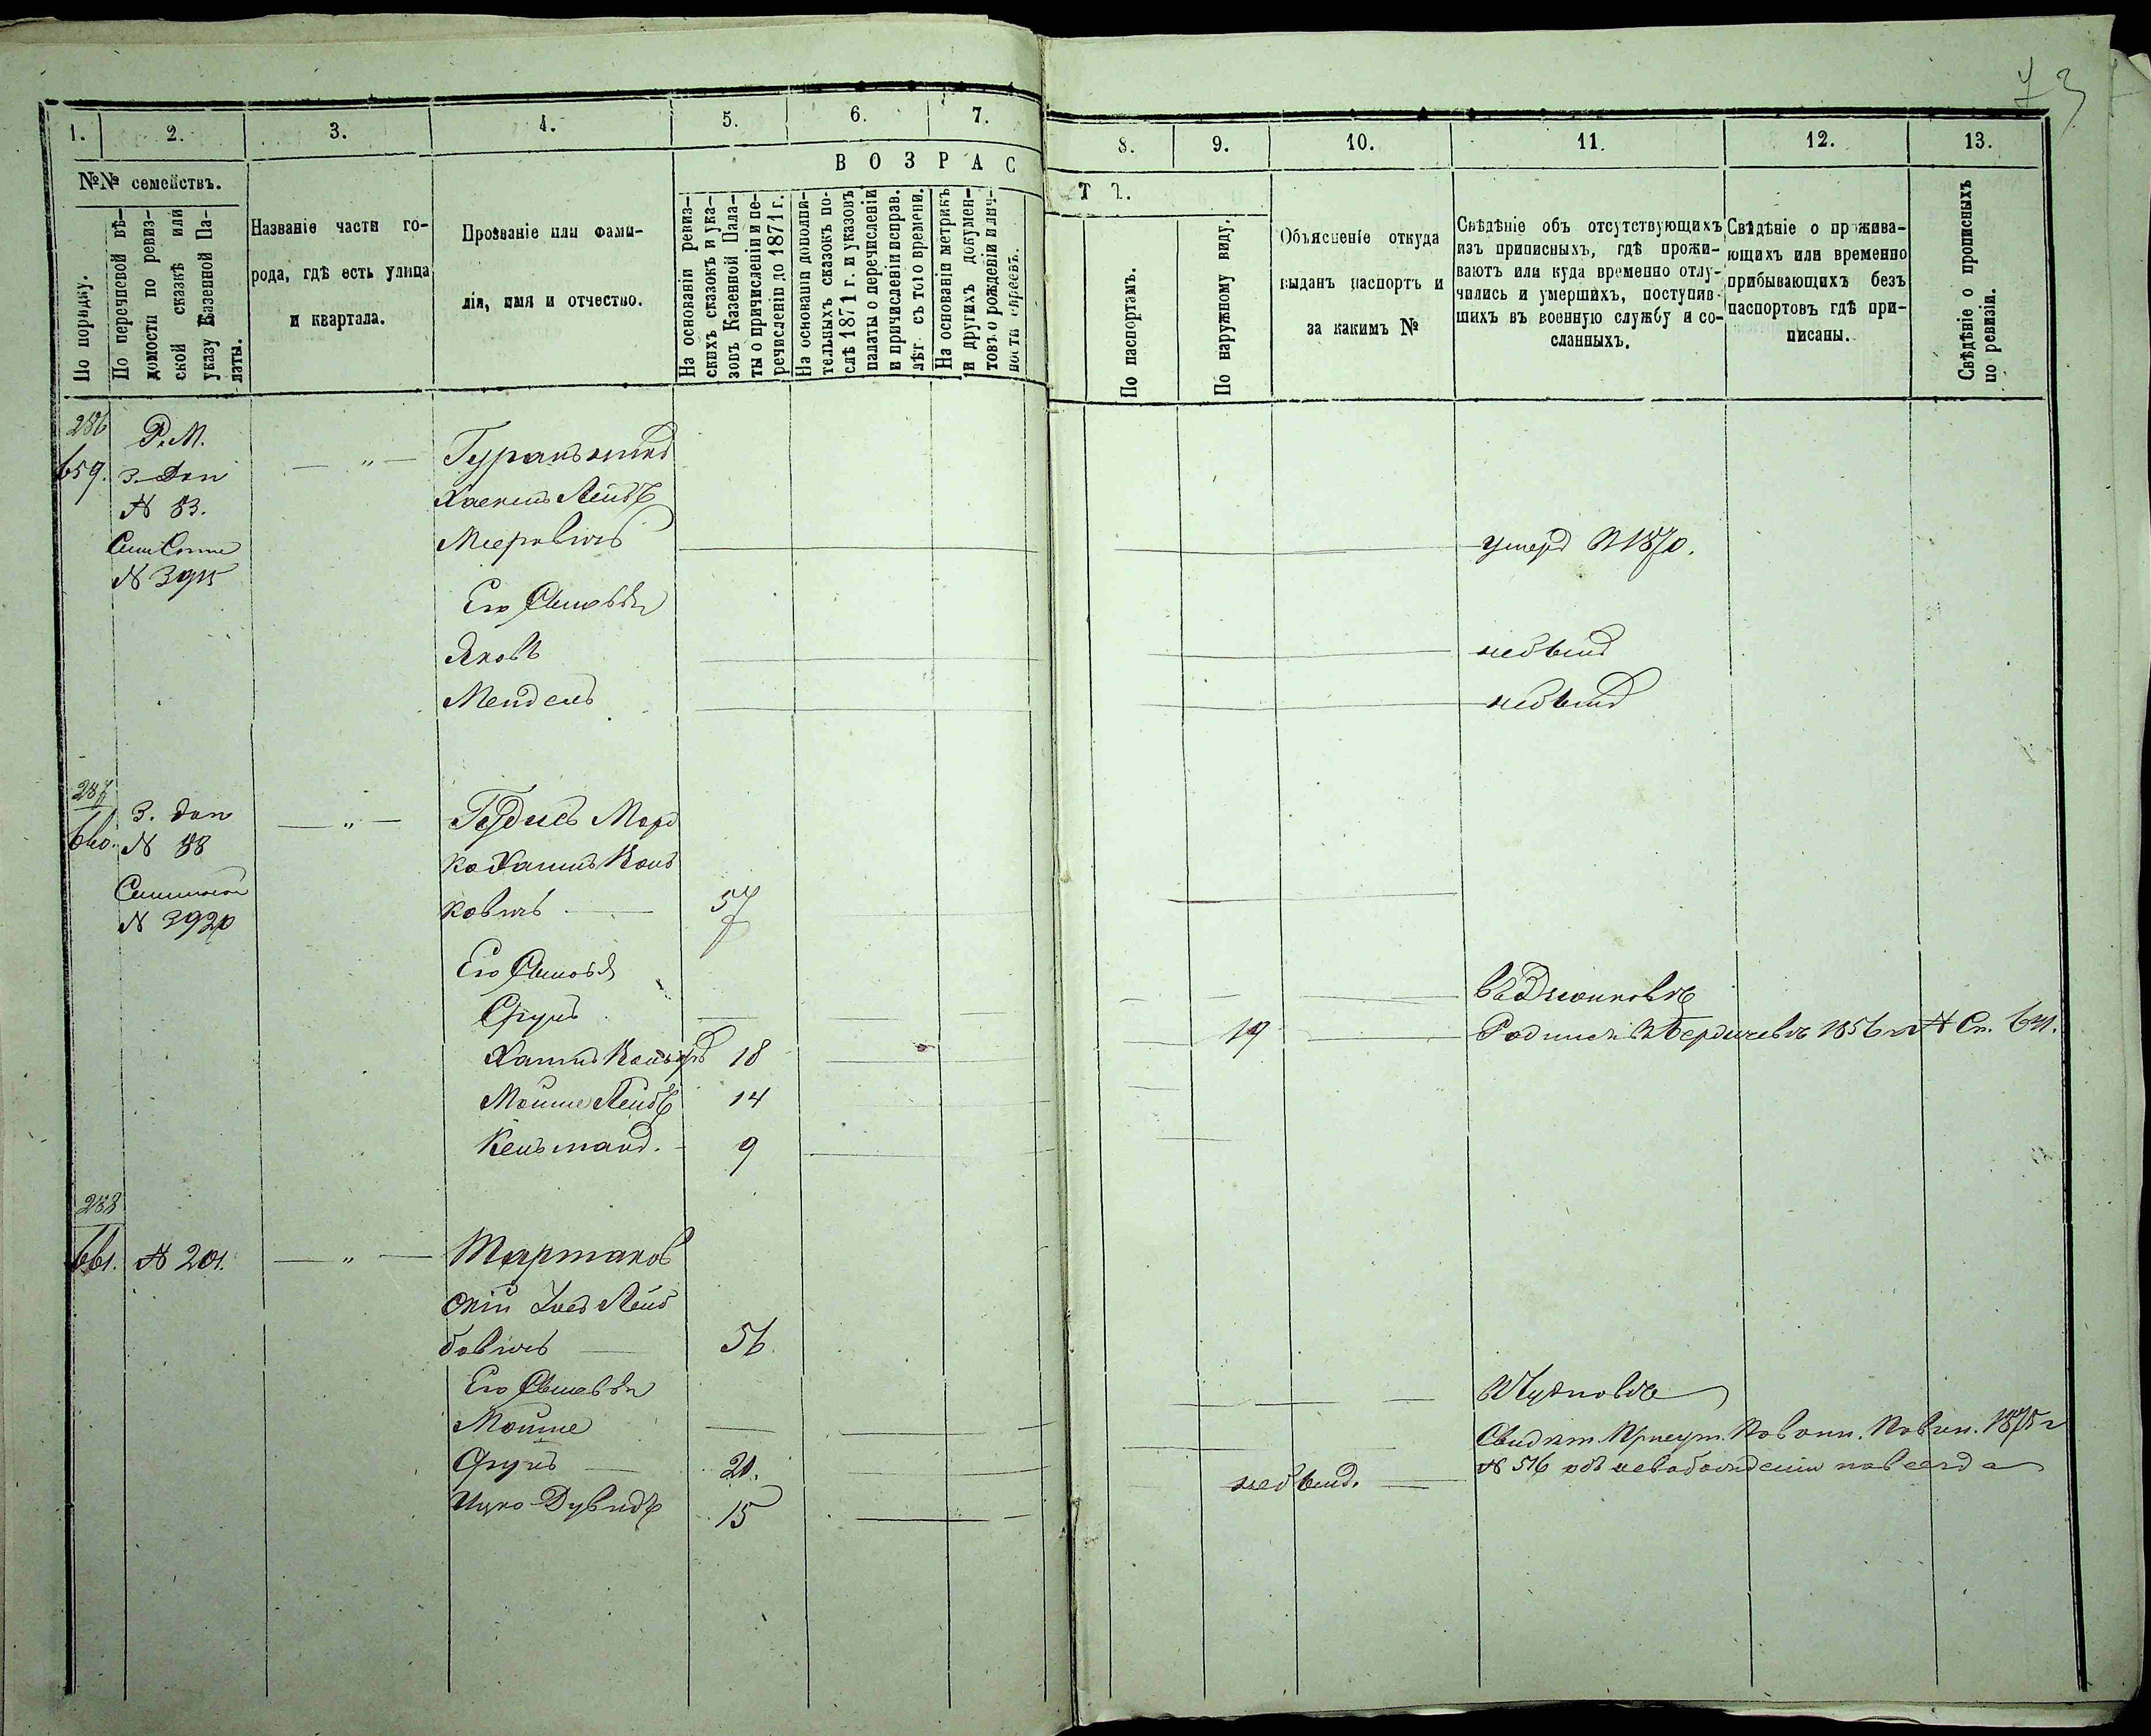 73
1. 2. 3. 4. 5. 6. 7. 8. 9. 10. 11. 12. 13.
№№ семействъ.
По порядку.
По перечневой вѣ-
домости по ревиз-
ской сказкѣ или
указу Казенной Па-
латы.
Названіе части го-
рода, гдѣ есть улица
и квартала.
Прозваніе или фами-
лія, имя и отчество.
ВОЗРАС
Т Ъ.
На основаніи ревиз-
скихъ сказокъ и ука-
зовъ Казенной Пала-
ты о причисленіи и пе-
речисленіи до 1871 г.
На основаніи дополни-
тельныхъ сказокъ по-
слѣ 1871 г. и указовъ
палаты о перечисленіи
и причисленіи исправ.
лѣт съ того времени.
На основаніи метрикъ
и другихъ докумен-
товъ о рожденіи и лич-
ности евреевъ.
По паспортамъ.
По наружному виду.
Объясненіе откуда
выданъ паспортъ и
за какимъ №
Свѣдѣніе объ отсутствующихъ
изъ приписныхъ, гдѣ прожи-
ваютъ или куда временно отлу-
чились и умершихъ, поступив-
шихъ въ военную службу и со-
сланныхъ.
Свѣдѣніе о прожива-
ющихъ или временно
прибывающихъ безъ
паспортовъ гдѣ при-
писаны.
Свѣдѣніе о прописныхъ
по ревизіи.
286
659.
Р. М.
3 Доп
№ 83.
№ 3915
— " —
Хаскель Лейбъ
Мееровичъ
умеръ В 1870.
Его Сыновья
Яковъ
небытіи
Мендель
небытіи
287
660.
3. Доп
№ 88
№ 3920
— " —
Мор
ко Хаимъ
ковичъ 57
Его Сыновья
Сруль
Хаимъ 18 19
Родился въ Бердичевѣ 1856 г № Сп. 641.
Мойше Лейбъ 14
Кельманъ. 9
288
661. № 201. — " —
Тартаков
скій Лейб
бовичъ 56
Его Сыновья
Мойше
Сруль 21.
Ицко-Дувидъ 15
въ Чудновѣ
1875 г
№ 516 навсегда